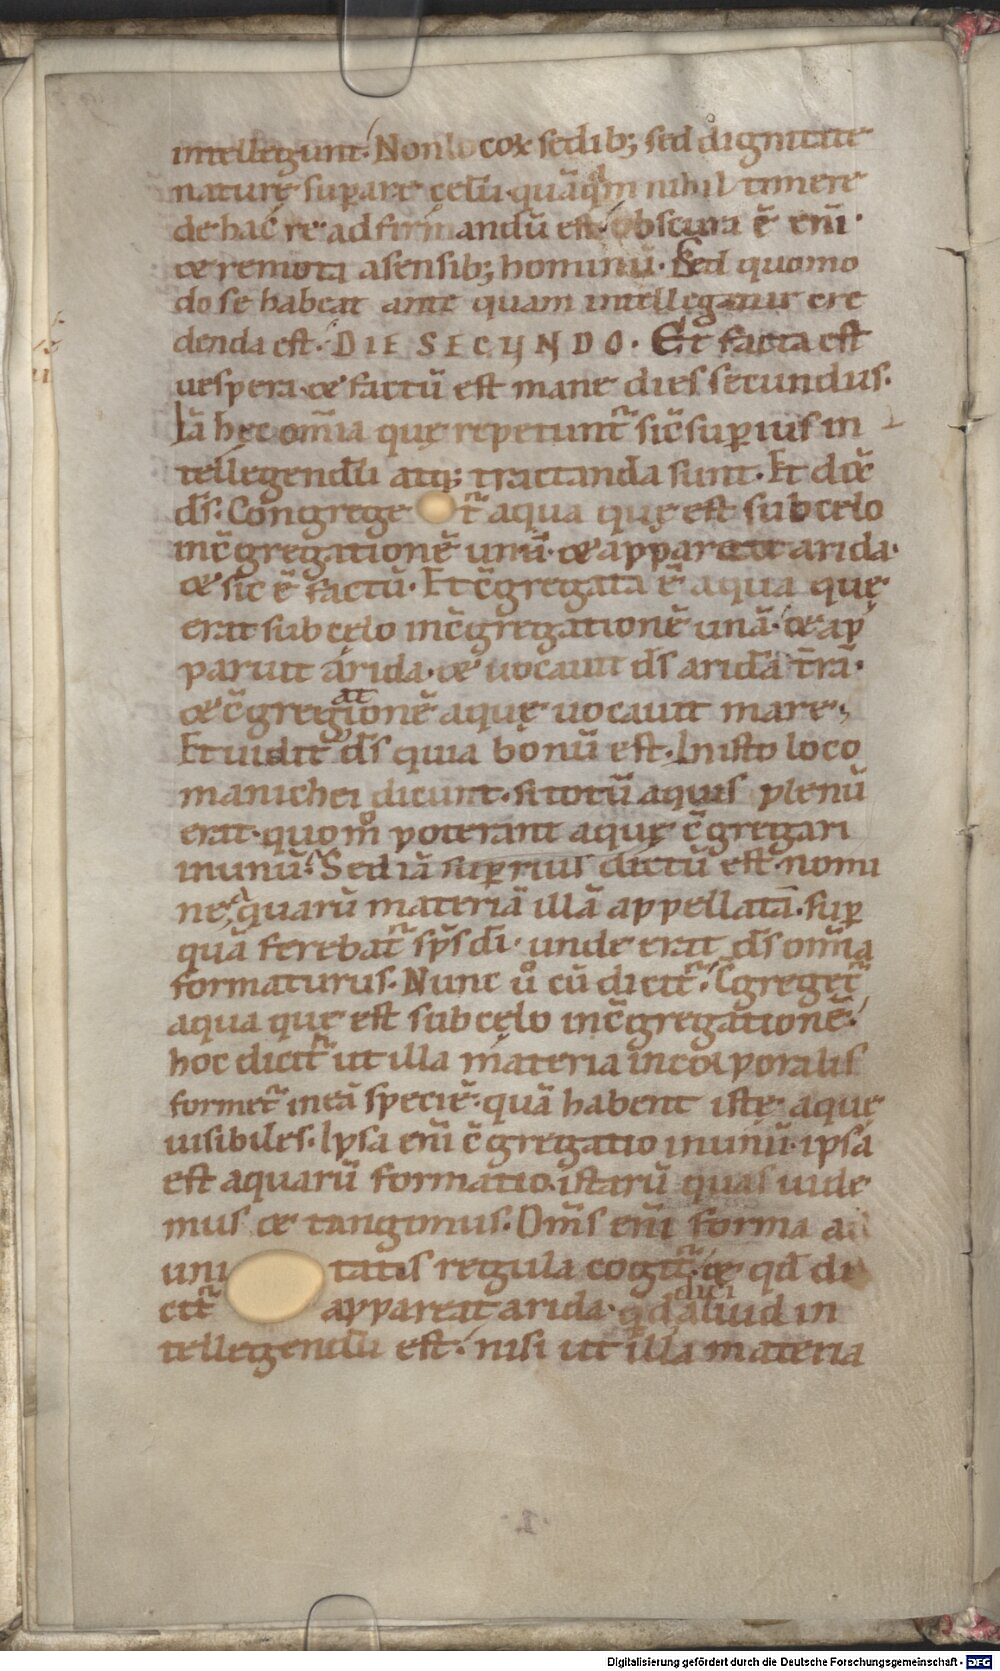 intellegunt. Non locoꝝ sedib; sed dignitate
naturę suꝑare cęlū. quāqͣm nihil timere
de hac re adfirmandū est. obscura ē eni̅.
& remota a sensib; hominū. Sed quomo
do se habeat ante quam intellegatur cre
denda est. DIE SECUNDO. Et facta est
uespera. & factū est mane dies secundus.
Iā hęc om̅ia quę repetunt᷑ sic̅ suꝑius in
tellegendi atq; tractanda sunt. Et dix̅
d̅s. Congrege t᷑ aqua quę est sub celo
in c̅gregationē unā. & appareat arida.
& sic ē factū. Et c̅gregata ē aqua quę
erat sub celo in c̅gregationē unā. & ap
paruit arida. & uocauit d̅s aridā t̅rā.
& c̅gregationē aquę uocauit mare.
at
Et uidit d̅s quia bonū est. In isto loco
manichei dicunt. si totū aquis plenū
erat. quom̊ poterant aquę c̅gregari
in unū. Sed iā suꝑrius dictū est. nomi
ne aquarū materiā illā appellatā. suꝑ
quā ferebat᷑ sp̅s d̅i. unde erat d̅s om̅ia
formaturus. Nunc ů cū dicit᷑. C̅greget᷑
aqua quę est sub cęlo in c̅gregationē.
hoc dicit᷑ ut illa materia incorporalis
formet᷑ in eā speciē. quā habent istę aquę
uisibiles. Ipsa eni̅ c̅gregatio in unū. ipsa
est aquarū formatio. istarū quas uide
mus & tangimus. Om̅s eni̅ forma ad
uni tatis regula cogit᷑. & qd̅ di
cit᷑ appareat arida. qd̅ aliud in
dici
tellegendū est. nisi ut illa materia
.1.
Digitalisierung gefördert durch die Deutsche Forschungsgemeinschaft - DFG